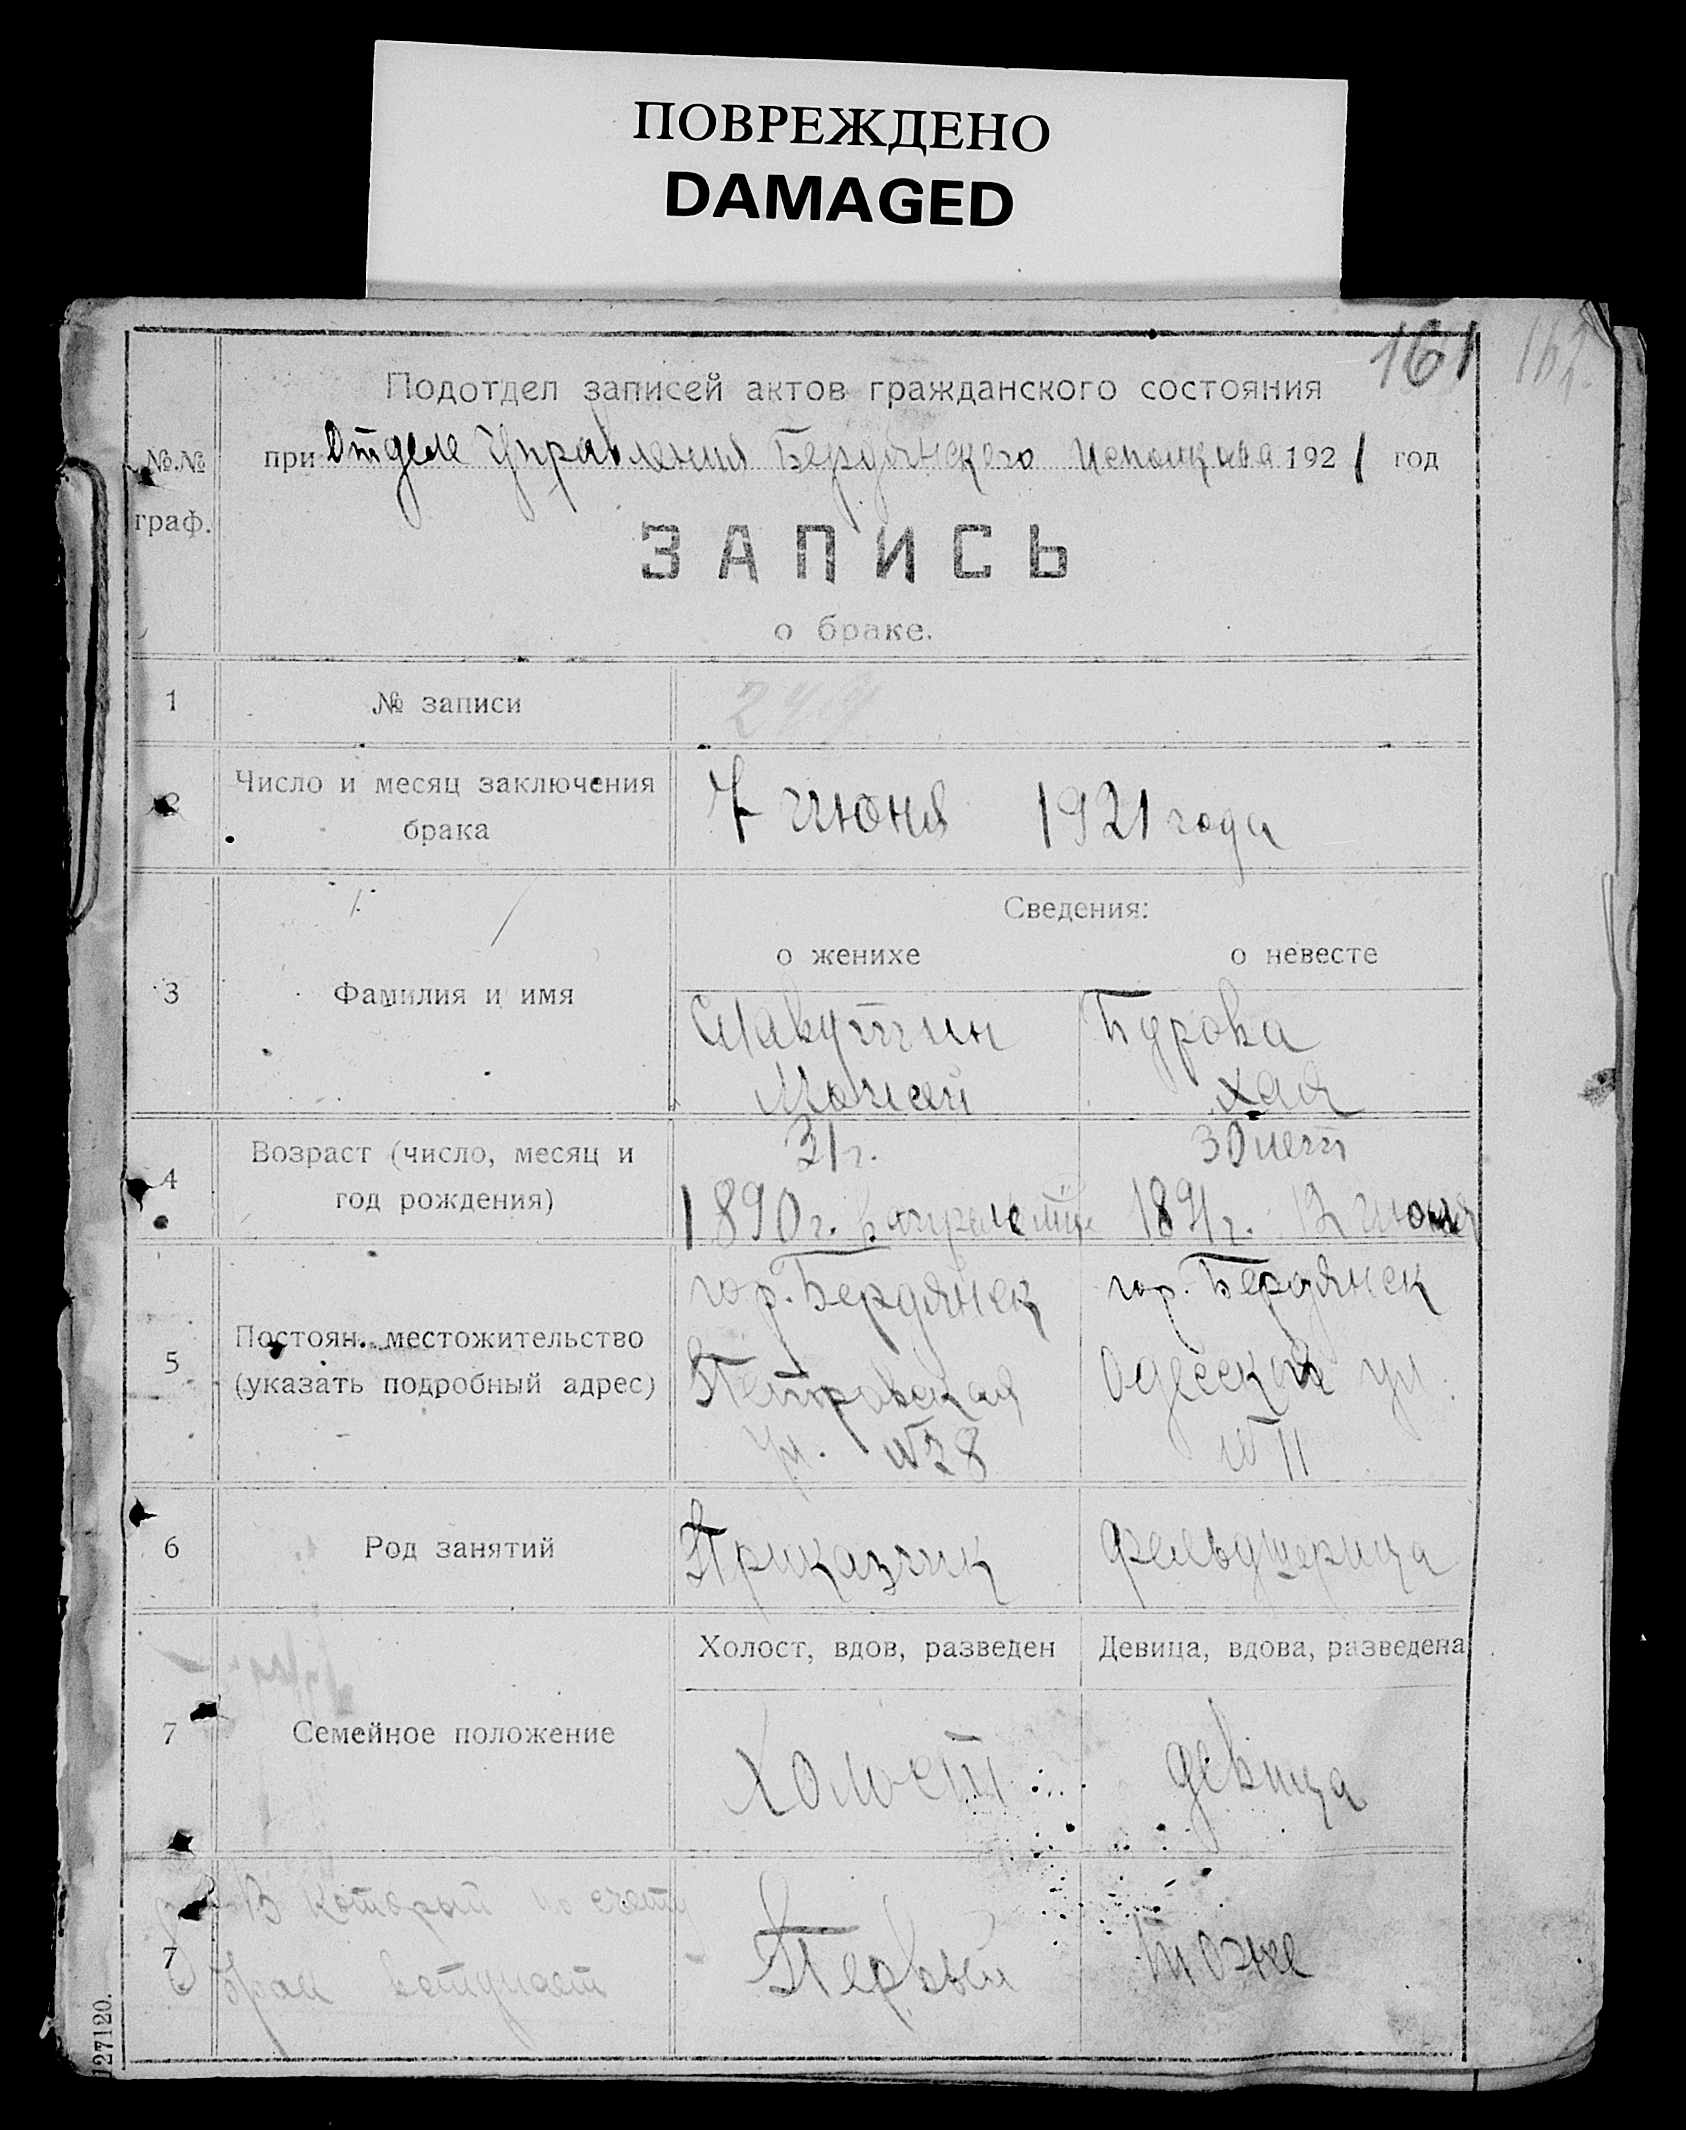 ПОВРЕЖДЕНО
DAMAGED
161
Подотдел записей актов гражданского состояния
№.№ граф.
при Отделе Управления Бердянского 1921 год
ЗАПИСЬ
о браке.
1 № записи
2 Число и месяц заключения брака
7 июня 1921 года
Сведения:
о женихе о невесте
3 Фамилия и имя
Бурова
Хая
4 Возраст (число, месяц и год рождения)
31 г. 30 лет
1890 г. 1891 г. 12 июня
5 Постоян. местожительство (указать подробный адрес)
гор. Бердянск гор. Бердянск
Петровская Одесская ул.
ул. №28 №11
6 Род занятий
Приказчик фельдшерица
Холост, вдов, разведен Девица, вдова, разведена
7 Семейное положение
Холост девица
7 В который по счету
брак вступает
Первый тоже
127120.